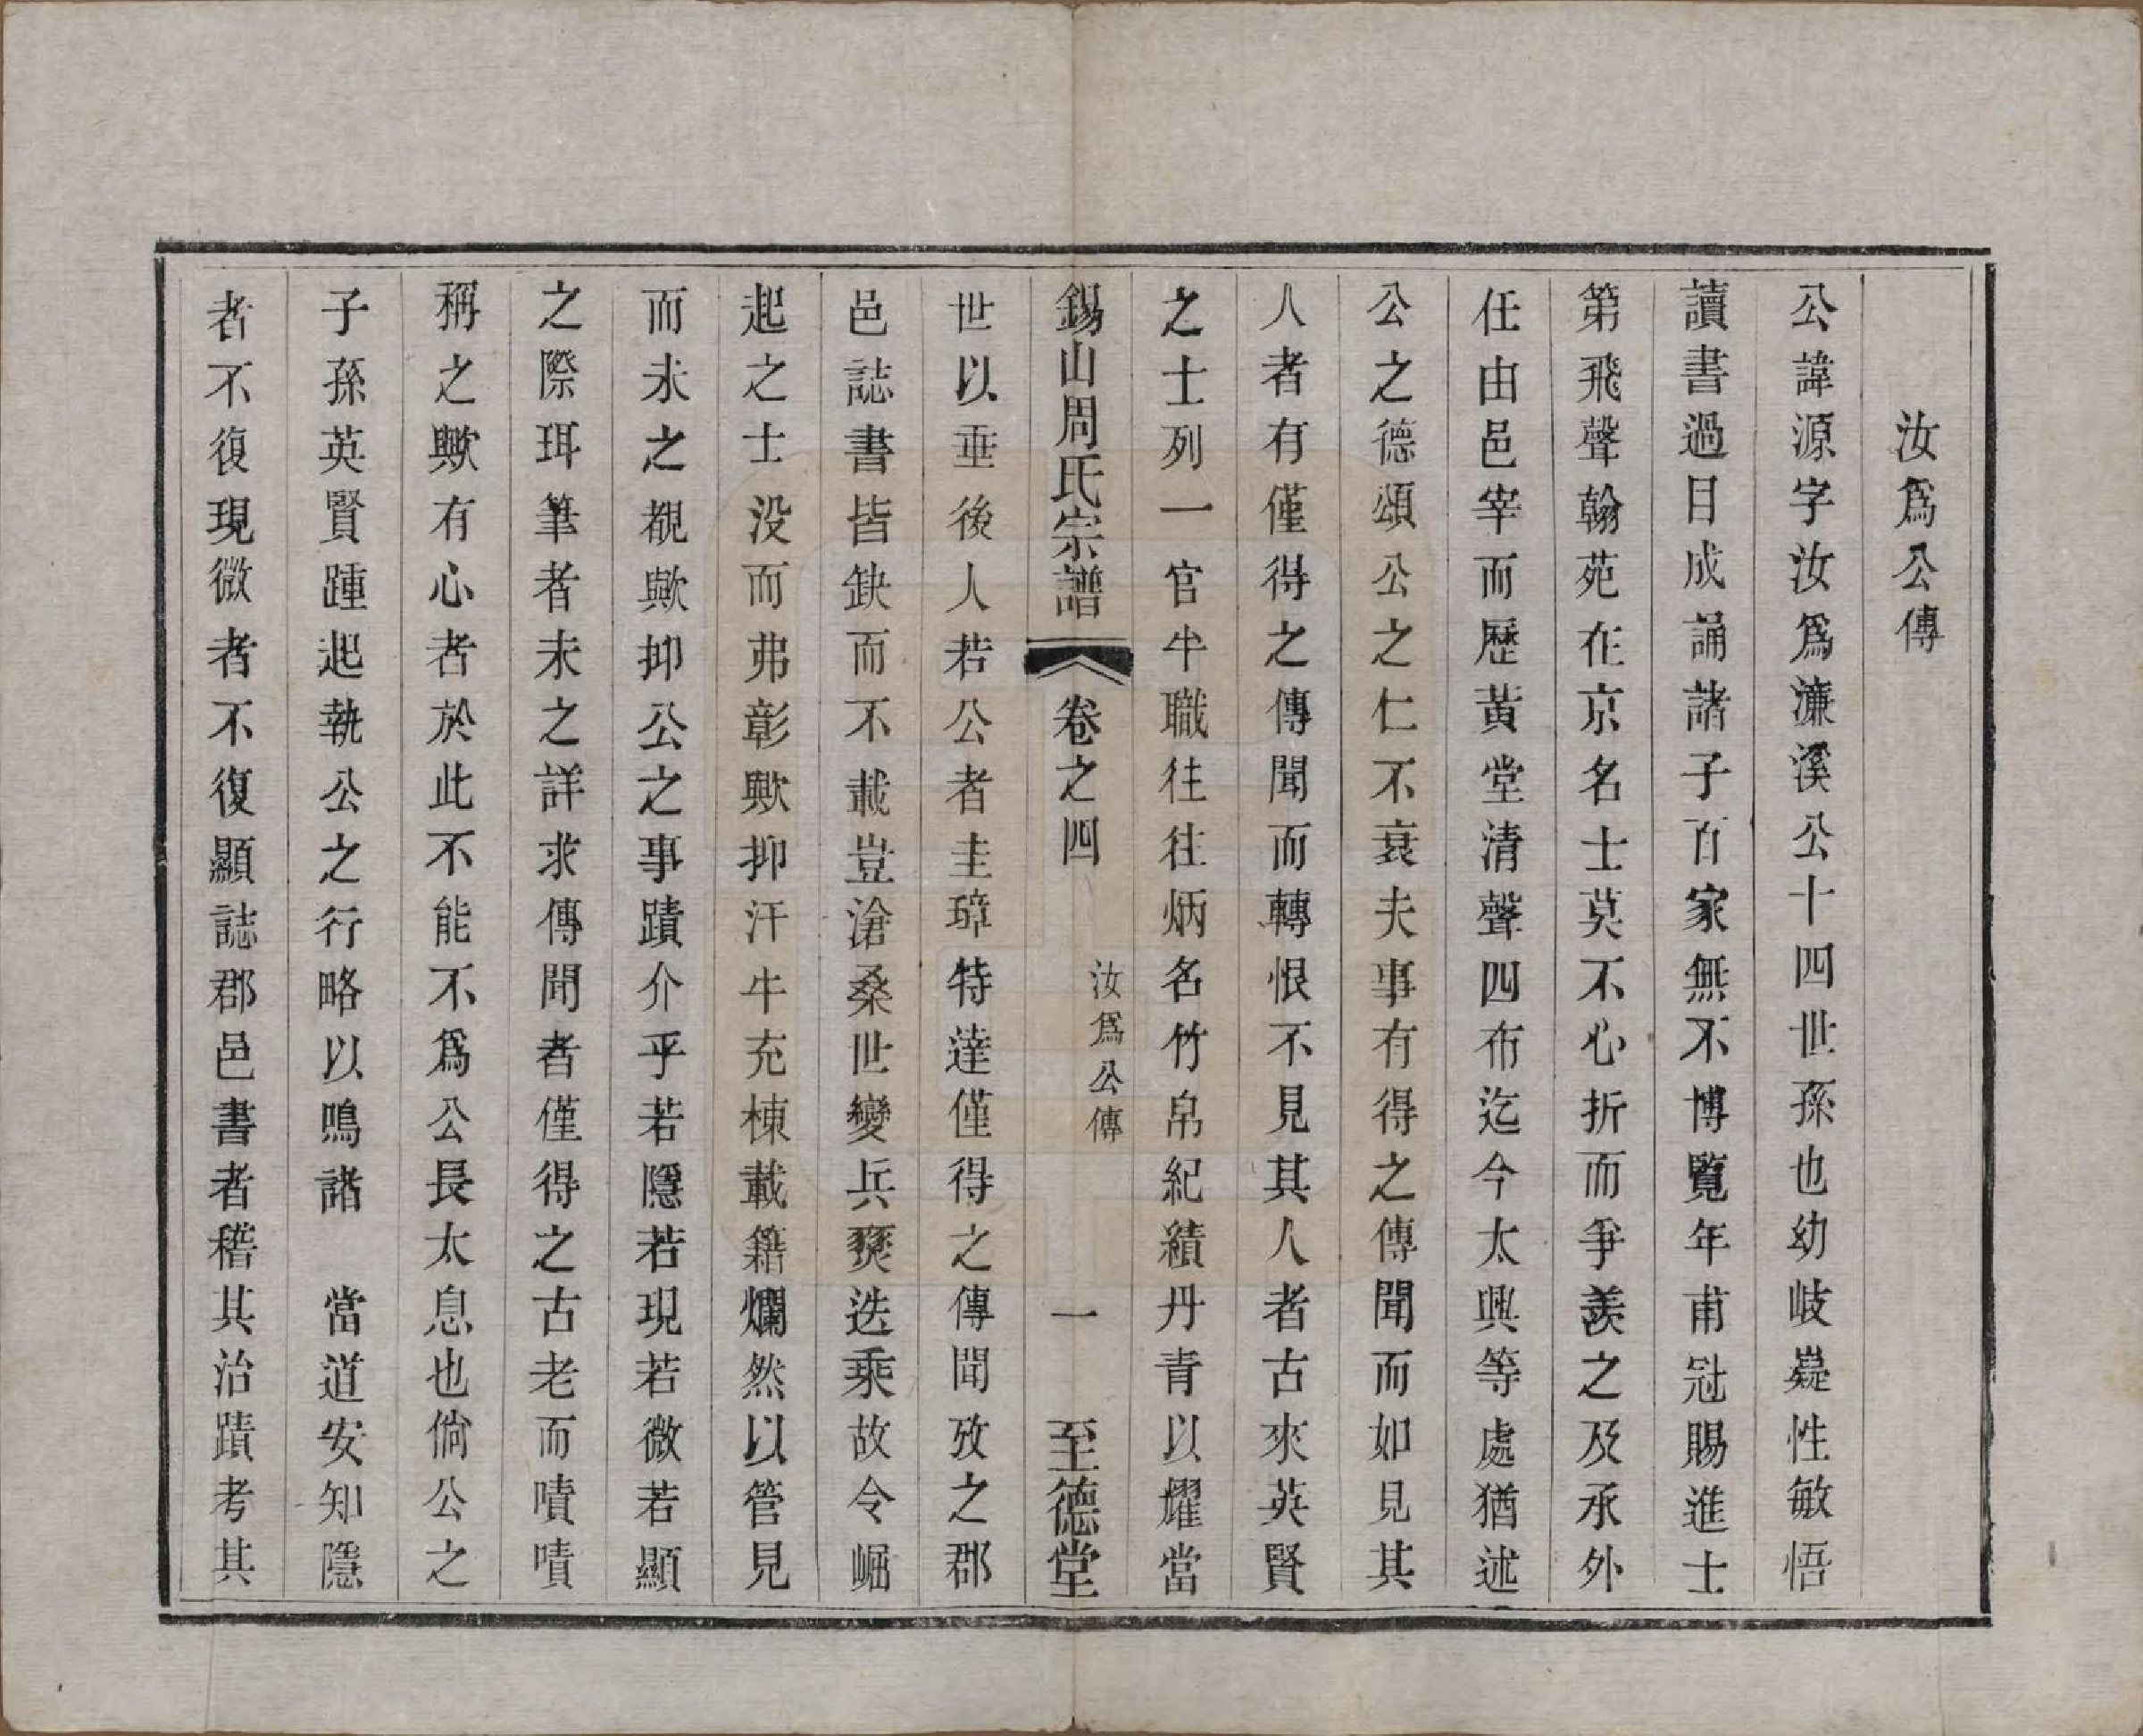 汝爲公傳
公諱源字汝爲濂溪公十四世孫也幼岐嶷性敏悟
讀書過目成誦諸子百家無不博覧年甫冠賜進士
第飛聲翰苑在京名士莫不心折而爭羨之及承外
任由邑宰而歷黃堂清聲四布迄今太興等處猶述
公之德頌公之仁不衰夫事有得之傳聞而如見其
人者有僅得之傳聞而轉恨不見其人者古來英賢
之士列一官半職往往炳名竹帛紀績丹青以耀當
錫山周氏宗譜 卷之四 汝爲公傳 一 至德堂
世以垂後人若公者圭璋特達僅得之傳聞攷之郡
邑誌書皆缺而不載豈滄桑世變兵燹迭乘故令崛
起之士没而弗彰歟抑汗牛充棟載籍爛然以管見
而未之覩歟抑公之事蹟介乎若隱若現若微若顯
之際珥筆者未之詳求傳聞者僅得之古老而嘖嘖
稱之歟有心者於此不能不爲公長太息也倘公之
子孫英賢踵起執公之行略以鳴諸 當道安知隱
者不復現微者不復顯誌郡邑書者稽其治蹟考其